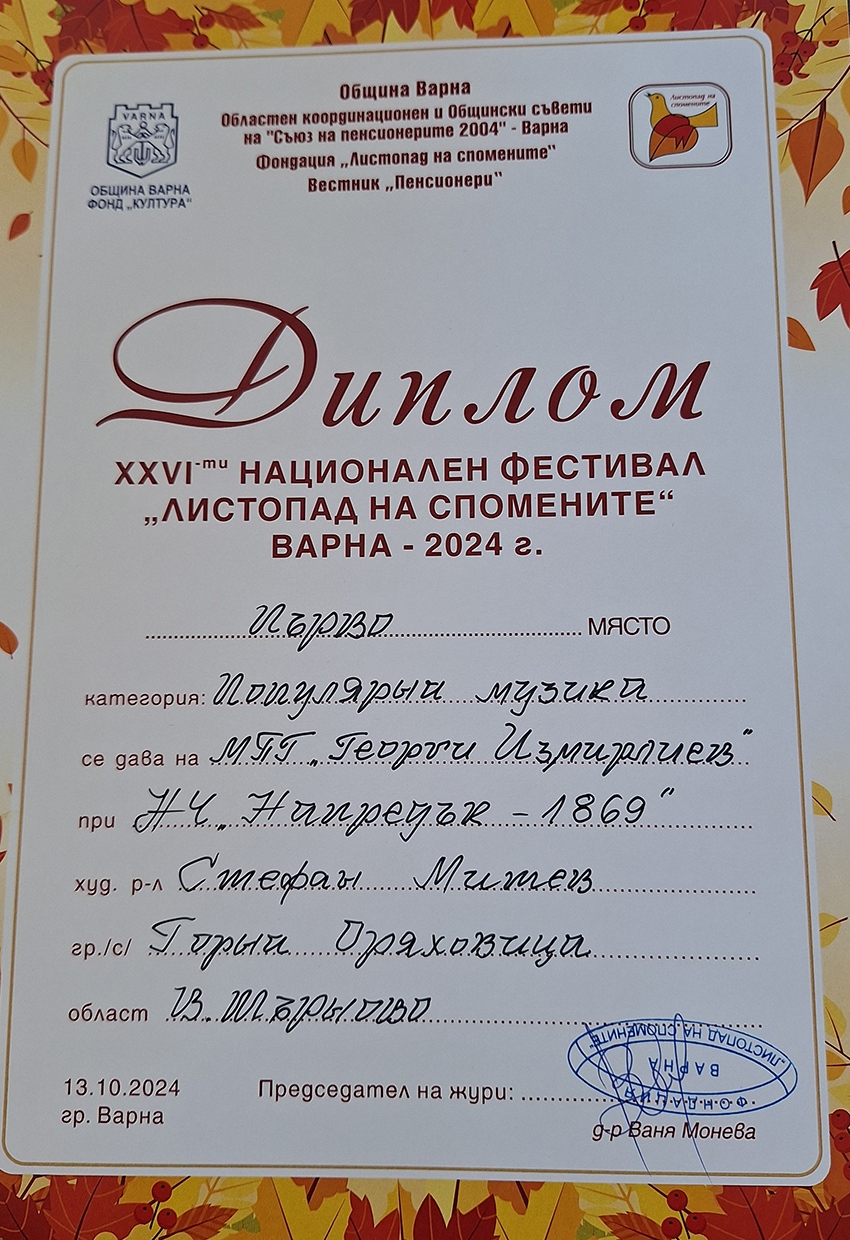 Община Варна
Областен координационен и Общински съвети
на "Съюз на пенсионерите 2004" - Варна
Фондация „Листопад на спомените"
Вестник „Пенсионери"
VARNA
ОБЩИНА ВАРНА
ФОНД „КУЛТУРА"
Листопад на
спомените
Диплом
XXVI-ти НАЦИОНАЛЕН ФЕСТИВАЛ
„ЛИСТОПАД НА СПОМЕНИТЕ“
ВАРНА - 2024 г.
Първо МЯСТО
категория: Популярна музика
се дава на МПГ „Георги Измирлиев"
при НЧ „Напредък - 1869"
худ. р-л Стефан Митев
гр./с/ Горна Оряховица
област В. Търново
13.10.2024
гр. Варна
Председател на жури:
д-р Ваня Монева
ФОНДАЦИЯ
ВАРНА
„ЛИСТОПАД НА СПОМЕНИТЕ"